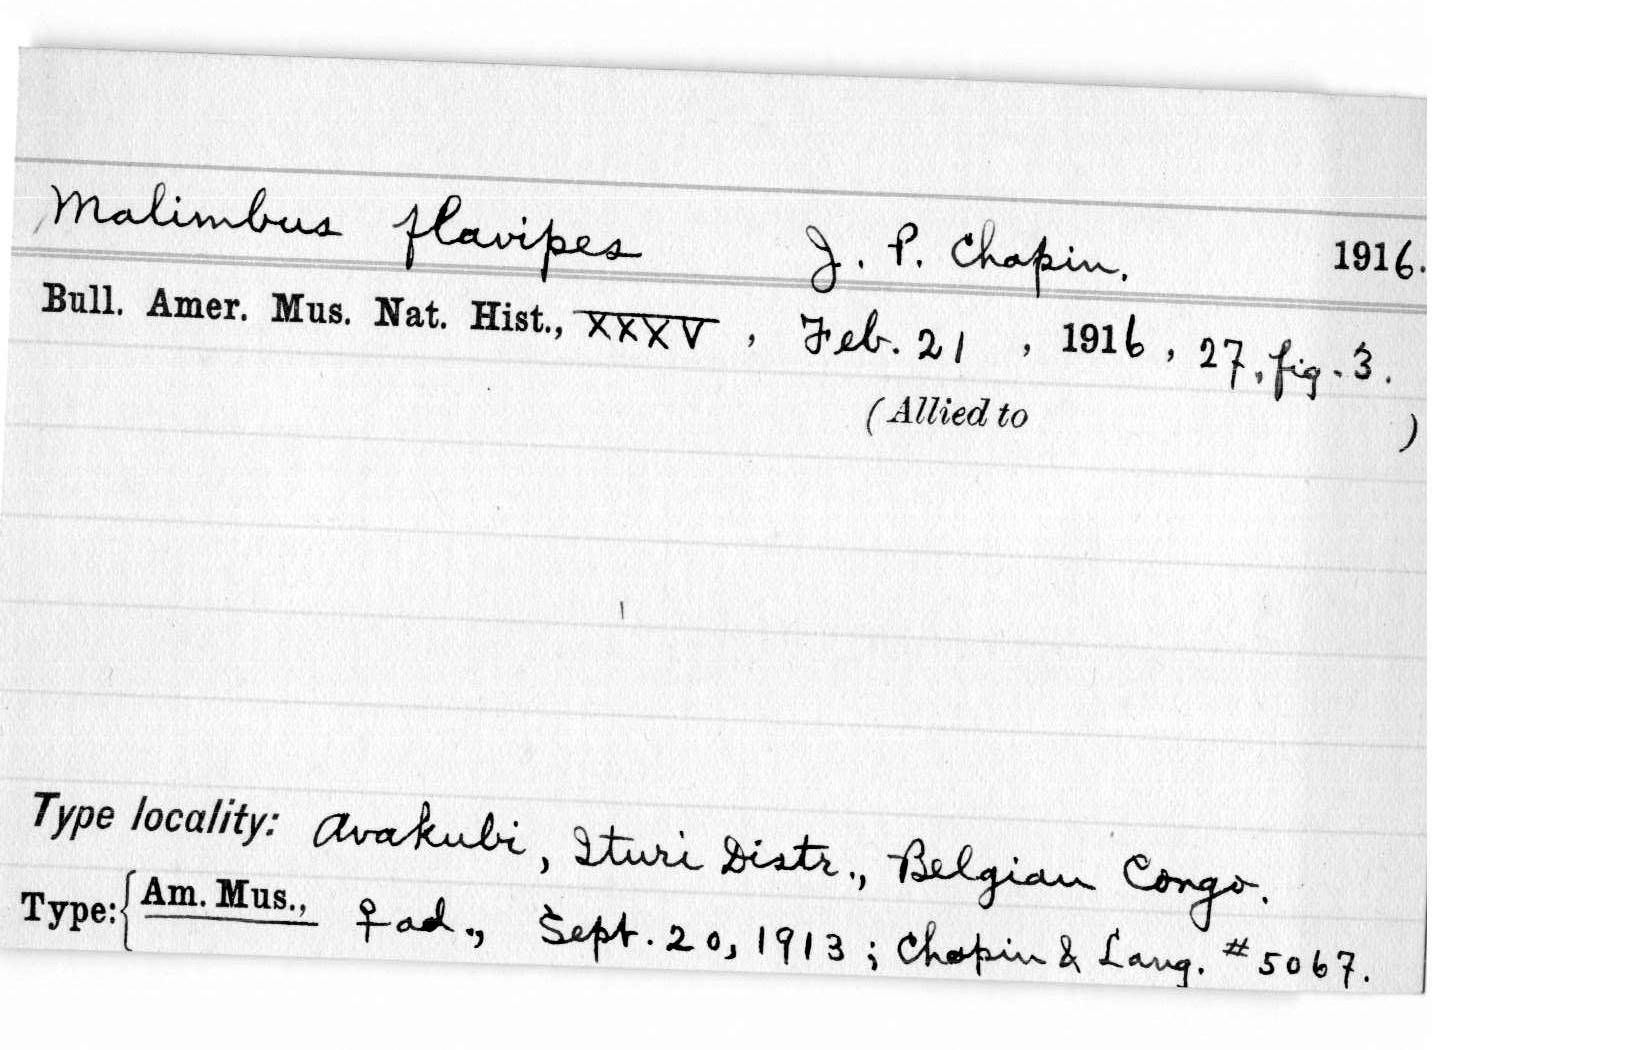 Malimbus flavipes J. P. Chapin. 1916.
Bull. Amer. Mus. Nat. Hist., XXXV, Feb. 21, 1916, 27, fig. 3.
(Allied to )
Type locality: Avakubi, Ituri Distr., Belgian Congo.
Type: { Am. Mus., ♀ ad., Sept. 20, 1913; Chapin & Lang. #5067.